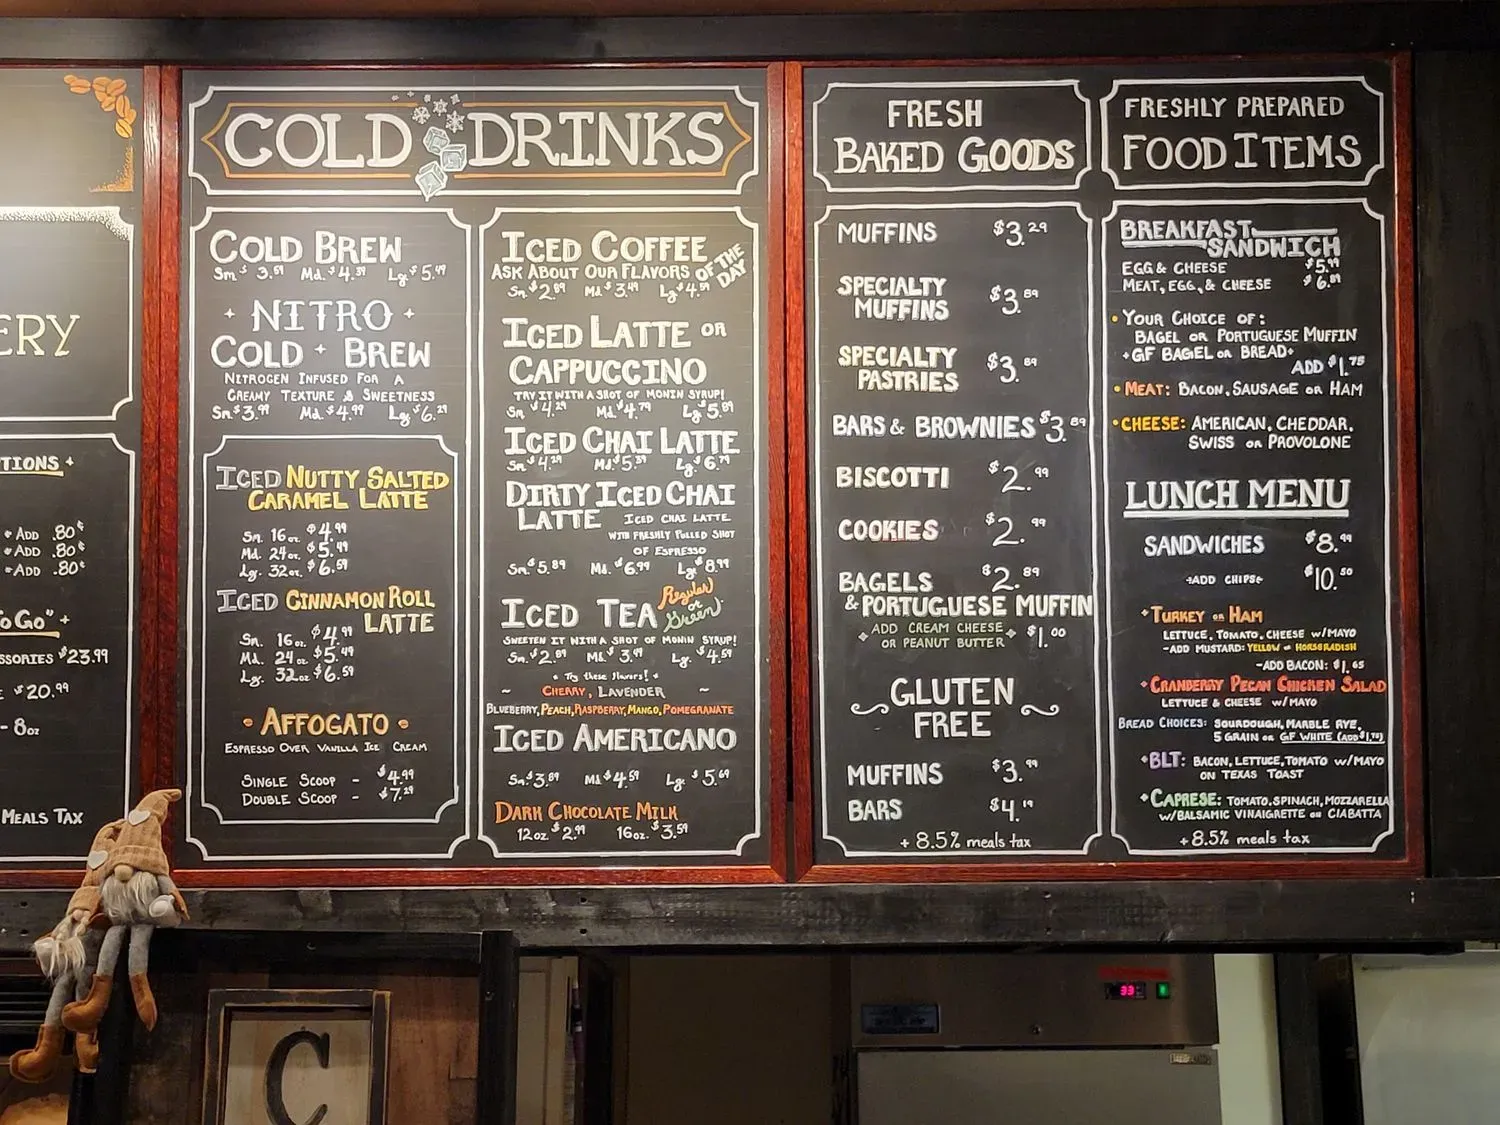 ERY
TIONS +
• ADD .80¢
• ADD .80¢
• ADD .80¢
O GO" +
SSORIES $23.99
$20.99
- 8oz
MEALS TAX
COLD DRINKS
COLD BREW
Sm. $3.59 Md. $4.39 Lg. $5.49
+ NITRO +
COLD + BREW
NITROGEN INFUSED FOR A
CREAMY TEXTURE & SWEETNESS
Sm. $3.99 Md. $4.99 Lg. $6.29
ICED NUTTY SALTED
CARAMEL LATTE
Sm. 16oz. $4.99
Md. 24oz. $5.49
Lg. 32oz. $6.59
ICED CINNAMON ROLL
LATTE
Sm. 16oz. $4.99
Md. 24oz. $5.49
Lg. 32oz $6.59
• AFFOGATO •
ESPRESSO OVER VANILLA ICE CREAM
SINGLE SCOOP - $4.99
DOUBLE SCOOP - $7.29
ICED COFFEE
ASK ABOUT OUR FLAVORS OF THE DAY
Sm. $2.89 Md. $3.49 Lg. $4.59
ICED LATTE OR
CAPPUCCINO
TRY IT WITH A SHOT OF MONIN SYRUP!
Sm. $4.29 Md. $4.79 Lg. $5.89
ICED CHAI LATTE
Sm. $4.29 Md. $5.39 Lg. $6.79
DIRTY ICED CHAI
LATTE ICED CHAI LATTE
WITH FRESHLY PULLED SHOT
OF ESPRESSO
Sm. $5.89 Md. $6.99 Lg. $8.99
ICED TEA Regular or Green!
SWEETEN IT WITH A SHOT OF MONIN SYRUP!
Sm. $2.89 Md. $3.49 Lg. $4.59
• Try these flavors! •
~ CHERRY, LAVENDER ~
BLUEBERRY, PEACH, RASPBERRY, MANGO, POMEGRANATE
ICED AMERICANO
Sm. $3.89 Md $4.59 Lg. $5.69
DARK CHOCOLATE MILK
12oz. $2.99 16oz. $3.59
FRESH
BAKED GOODS
MUFFINS $3.29
SPECIALTY
MUFFINS $3.89
SPECIALTY
PASTRIES $3.89
BARS & BROWNIES $3.89
BISCOTTI $2.99
COOKIES $2.99
BAGELS $2.89
& PORTUGUESE MUFFIN
+ ADD CREAM CHEESE +
OR PEANUT BUTTER $1.00
GLUTEN
FREE
MUFFINS $3.99
BARS $4.19
+ 8.5% meals tax
FRESHLY PREPARED
FOOD ITEMS
BREAKFAST
SANDWICH
EGG & CHEESE $5.99
MEAT, EGG, & CHEESE $6.89
• YOUR CHOICE OF:
BAGEL OR PORTUGUESE MUFFIN
+GF BAGEL OR BREAD+
ADD $1.75
• MEAT: BACON, SAUSAGE OR HAM
• CHEESE: AMERICAN, CHEDDAR,
SWISS OR PROVOLONE
LUNCH MENU
SANDWICHES $8.99
+ADD CHIPS+ $10.50
+TURKEY OR HAM
LETTUCE, TOMATO, CHEESE W/MAYO
-ADD MUSTARD: YELLOW OR HORSERADISH
-ADD BACON: $1.65
+CRANBERRY PECAN CHICKEN SALAD
LETTUCE & CHEESE W/MAYO
BREAD CHOICES: SOURDOUGH, MARBLE RYE,
5 GRAIN OR GF WHITE (ADD $1.75)
+BLT: BACON, LETTUCE, TOMATO W/MAYO
ON TEXAS TOAST
+CAPRESE: TOMATO, SPINACH, MOZZARELLA
W/BALSAMIC VINAIGRETTE ON CIABATTA
+ 8.5% meals tax
33
C